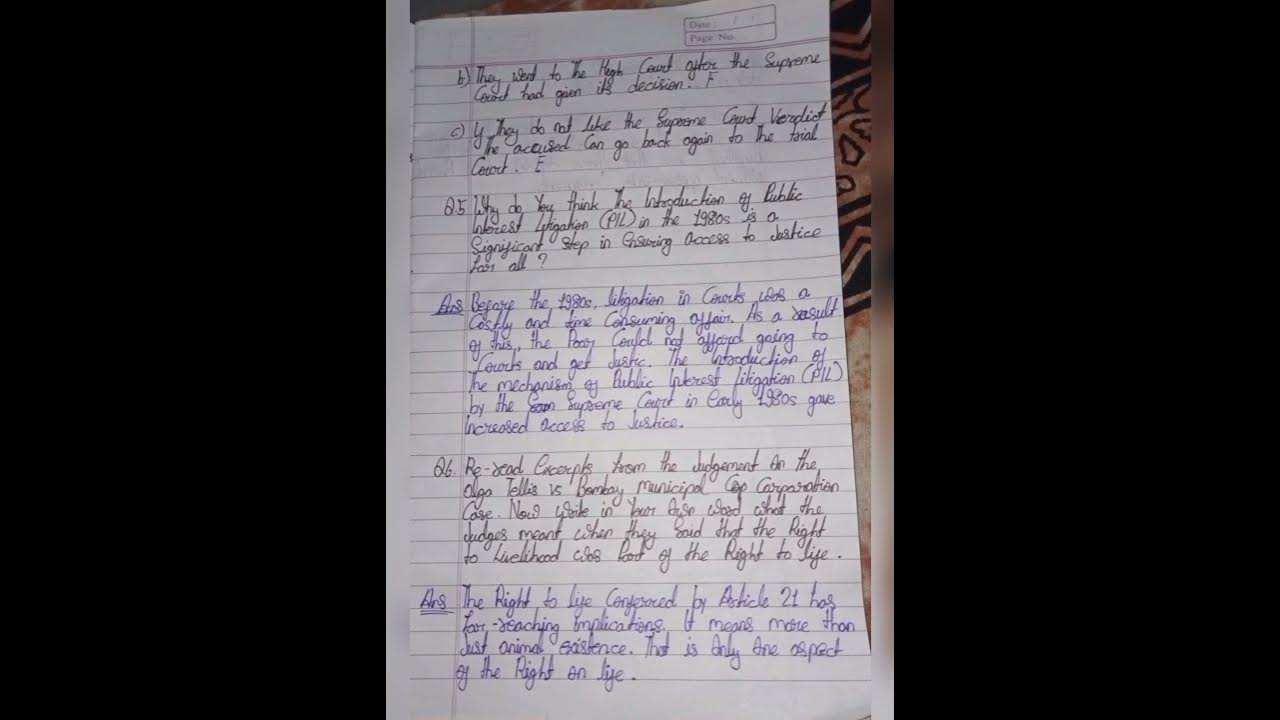 Date :
Page No.
b) They went to the High Court after the Supreme
Court had given its decision. F
c) If They do not like the Supreme Court Verdict
The accused Can go back again to the trial
Court. F
Q5 Why do You think The Introduction of Public
Interest Litigation (PIL) in the 1980s is a
Significant step in Ensuring access to Justice
For all ?
Ans Before the 1980s, litigation in Courts was a
Costly and time Consuming affair. As a result
of this, the Poor Could not afford going to
Courts and get Justic. The introduction of
The mechanism of Public Interest Litigation (PIL)
by the Supreme Court in Early 1980s gave
Increased access to Justice.
Q6. Re-read Excerpts from the Judgement on the
Olga Tellis vs Bombay municipal Corparation
Case. Now write in Your Own word what the
Judges meant when they Said that the Right
to Livelihood was Part of the Right to life.
Ans The Right to life Conferred by Article 21 has
Far-reaching implications. It means more than
Just animal existence. That is Only One aspect
of the Right on life.